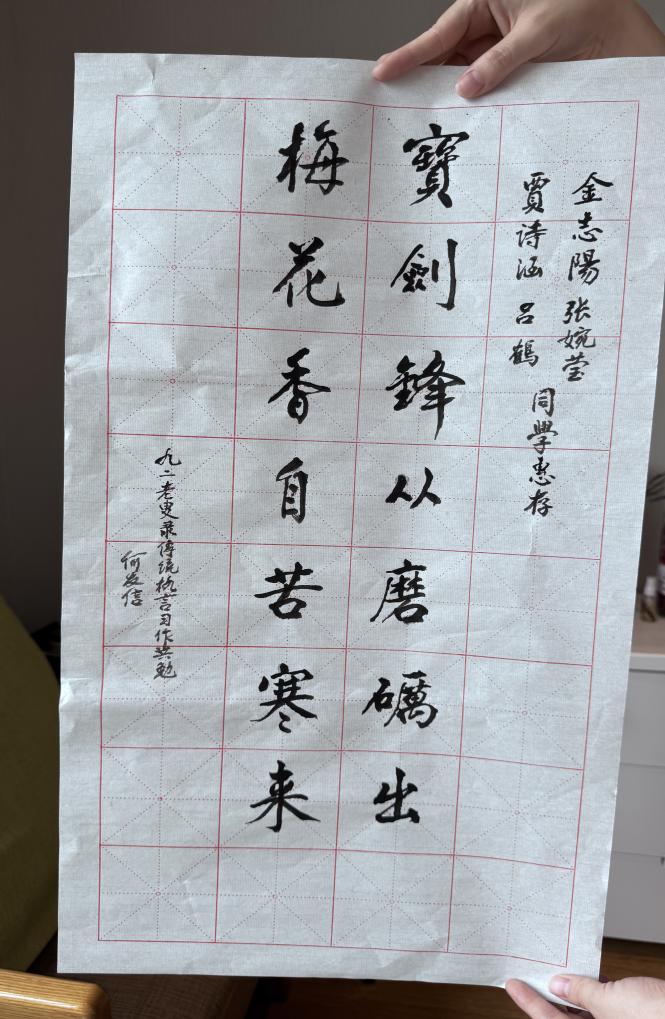 金志陽 张婉莹
賈诗涵 吕鶴
同學惠存
寶劍鋒从磨礪出
梅花香自苦寒来
九二老叟录傳统格言习作共勉
何友信